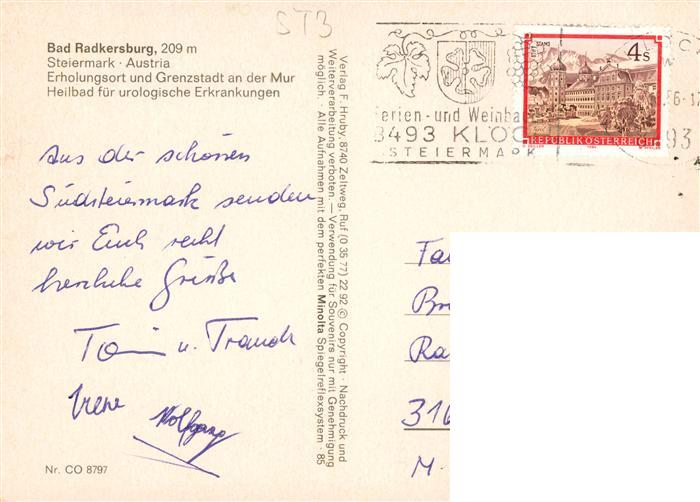 ST3
Bad Radkersburg, 209 m
Steiermark · Austria
Erholungsort und Grenzstadt an der Mur
Heilbad für urologische Erkrankungen
Aus der schönen
Südsteiermark senden
wir Euch recht
herzliche Grüße
u.
Irene Wolfgang
Nr. CO 8797
Verlag F. Hruby, 8740 Zeltweg, Ruf (0 35 77) 22 92 © Copyright · Nachdruck und
Weiterverarbeitung verboten. — Verwendung für Souvenirs nur mit Genehmigung
möglich. · Alle Aufnahmen mit dem perfekten Minolta Spiegelreflexsystem · 85
Ferien - und Weinba
8493 KLÖC
STEIERMARK
STIFT STAMS
4 S
Tirol
REPUBLIK ÖSTERREICH
86-17
93
Fa
B
Ra
316
M-